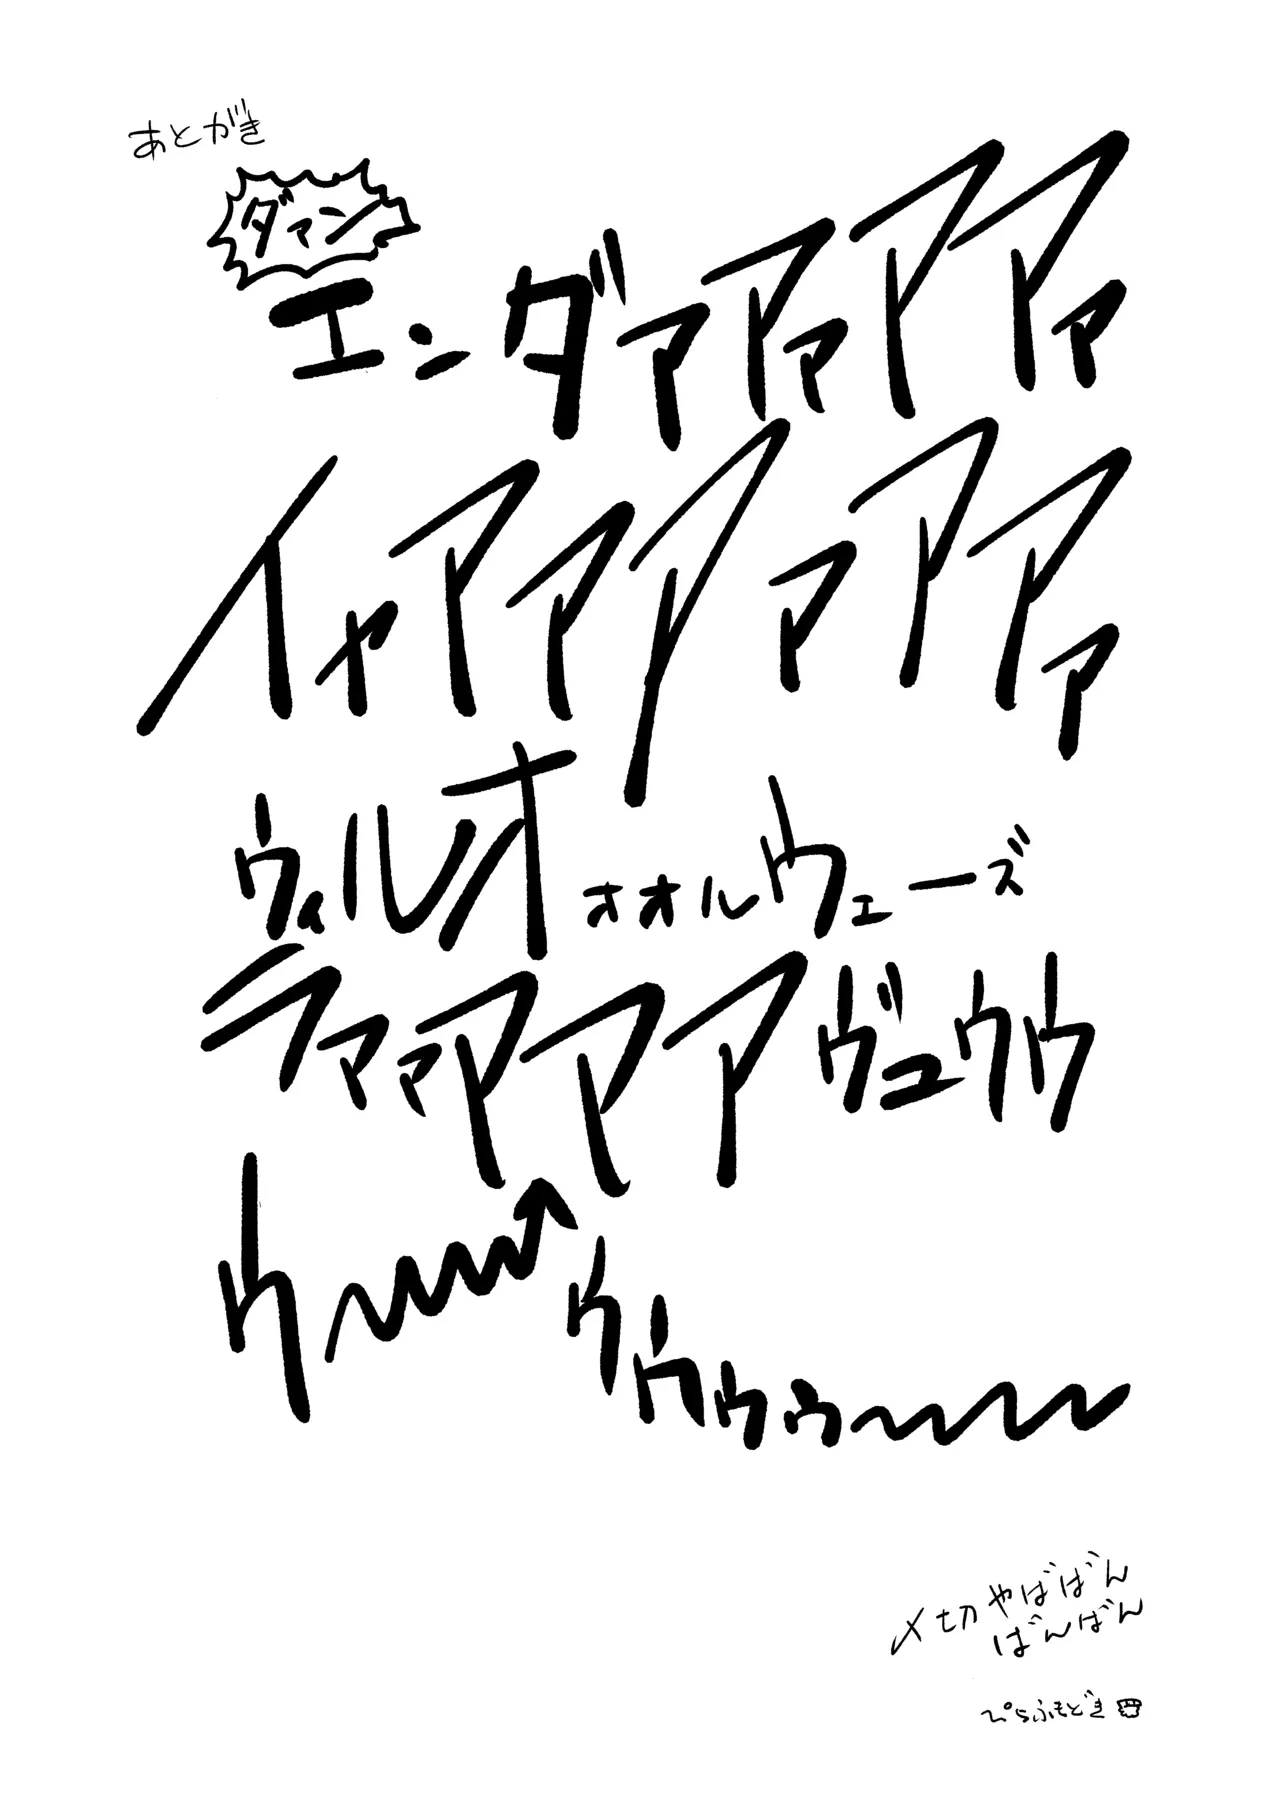 あとがき
ダァン
エンダァアァアアァ
イャアアアァアアァ
ウィルオォオルウェーズ
ラァァアアアヴュウウ
ウ〜〜〜↑
ウウゥゥ〜〜〜
〆切やばばん
ばんばん
ぴらふもどき